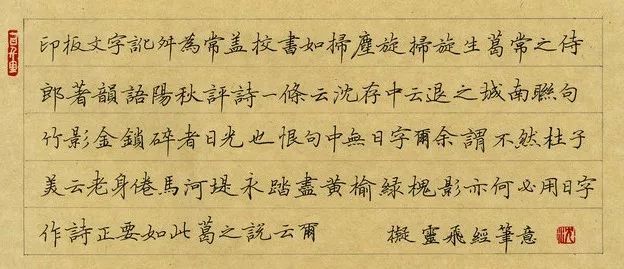 印板文字訛舛為常盖校書如掃塵旋掃旋生葛常之侍
郎著韻語陽秋評詩一條云沈存中云退之城南聯句
竹影金鎖碎者日光也恨句中無日字爾余謂不然杜子
美云老身倦馬河堤永踏盡黄榆緑槐影亦何必用日字
作詩正要如此葛之説云爾 擬靈飛經筆意